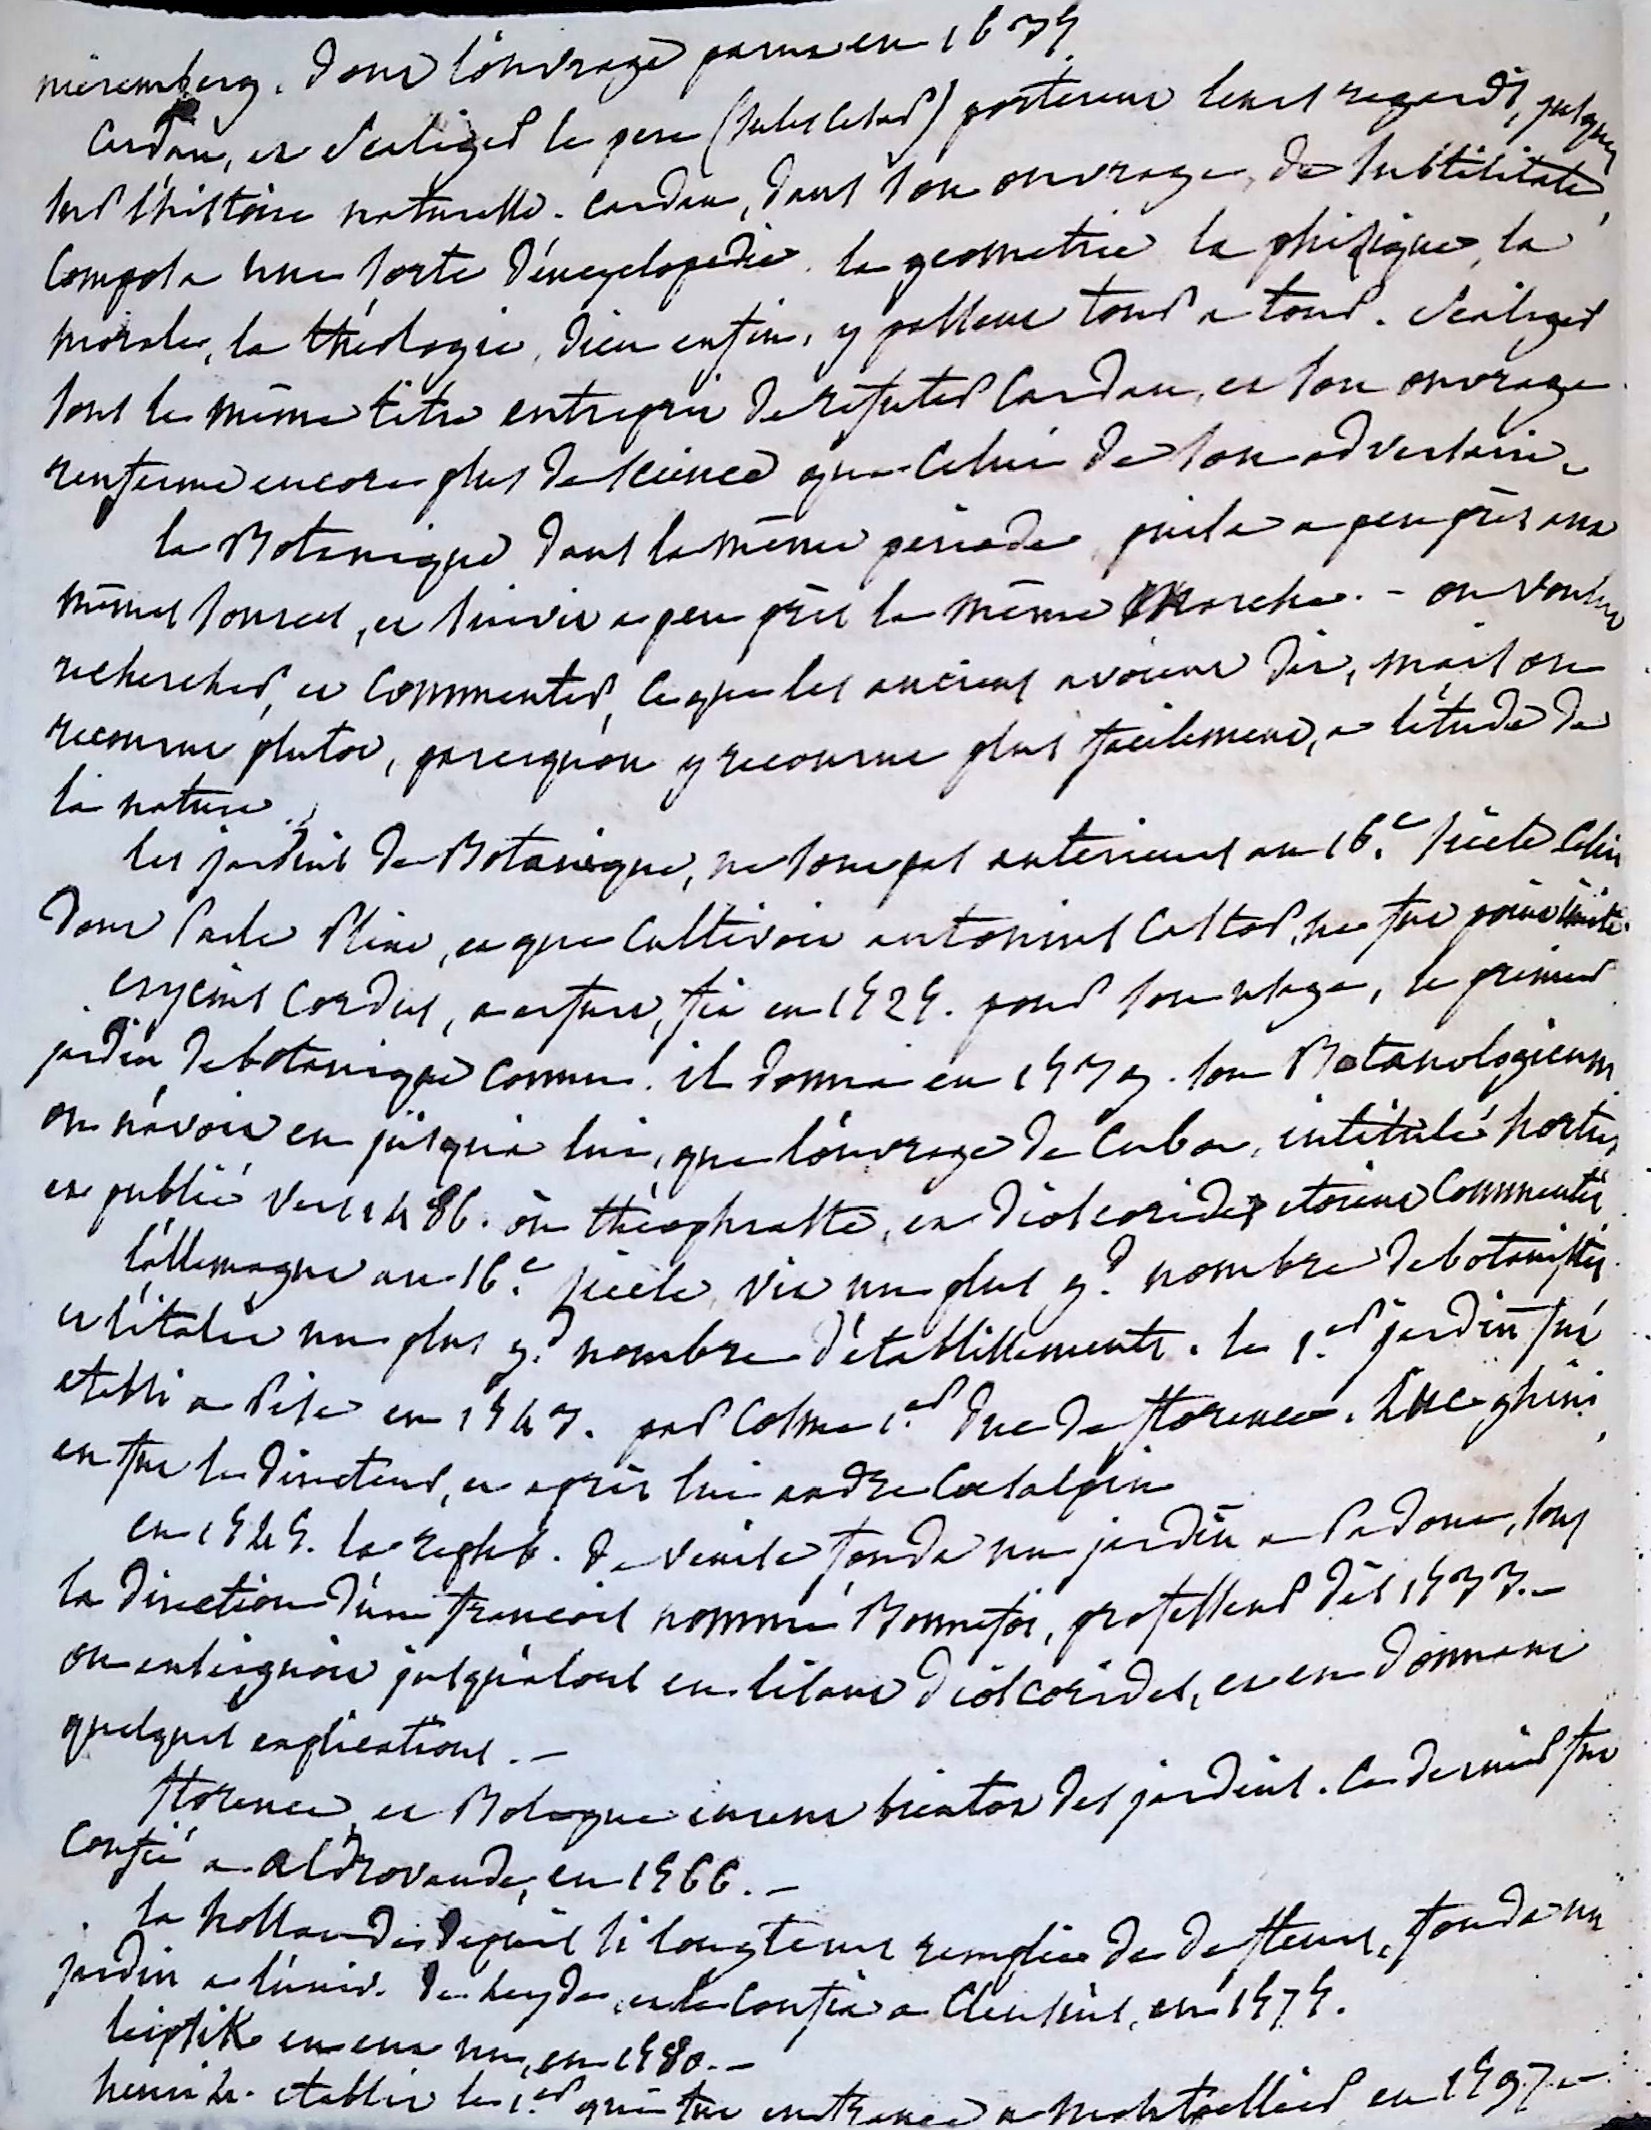 nieremberg. dont l'ouvrage parut en 1635.
Cardan, et Scaliger le pere (Jules Cesar) porterent leurs regards, jusques
sur l'histoire naturelle. Cardan, dans son ouvrage, de subtilitate,
composa une sorte d'encyclopedie. la geometrie la phisique, la
morale, la théologie, dieu enfin, y passent tour a tour. Scaliger
sous le même titre entreprit de refuter Cardan, et son ouvrage
renferme encore plus de science que celui de son adversaire.
la Botanique dans la même periode puisa a peu près aux
mêmes sources, et suivit a peu près la même marche. - on voulut
rechercher, et commenter, ce que les anciens avoient dit, mais on
recourut plutot, parcequ'on y recourut plus facilement, a l'étude de
la nature.
les jardins de Botanique, ne sont pas anterieurs au 16.e siècle celui
dont parle Pline, et que cultivoit antonius Castor, ne fut point imité.
Cordus, a erfurt, fit en 1525. pour son usage, le premier
jardin de botanique connu. il donna en 1535. son Botanologicum
on n'avoit eu jusqu'a lui, que l'ouvrage de Cuba, intitulé hortus
et publié vers 1486. où théophraste, et dioscoride etoient commentés
l'allemagne au 16.e siècle, vit un plus g.d nombre de botanistes
et l'italie un plus g.d nombre d'établissements. le 1.er jardin fut
etabli a Pise en 1543. par Cosme 1.er duc de florence. Luc ghini,
en fut le directeur, et après lui andré Cesalpin
en 1545. la repub. de Venise fonda un jardin a Padoue, sous
la direction d'un francois nommé Bonnefoi, professeur dès 1533. -
on enseignoit jusqu'alors en lisant dioscorides, et en donnant
quelques explications. -
florence, et Bologne eurent bientot des jardins. Ce dernier fut
confié a Aldrovande, en 1566. -
la hollande depuis si longtems remplie de fleurs, fonda un
jardin a l'univ. de leyde, et le confia a Clusius, en 1575.
leipsik en eut un, en 1580. -
henri 4. etablit le 1.er qui fut en france a Montpellier en 1597 -